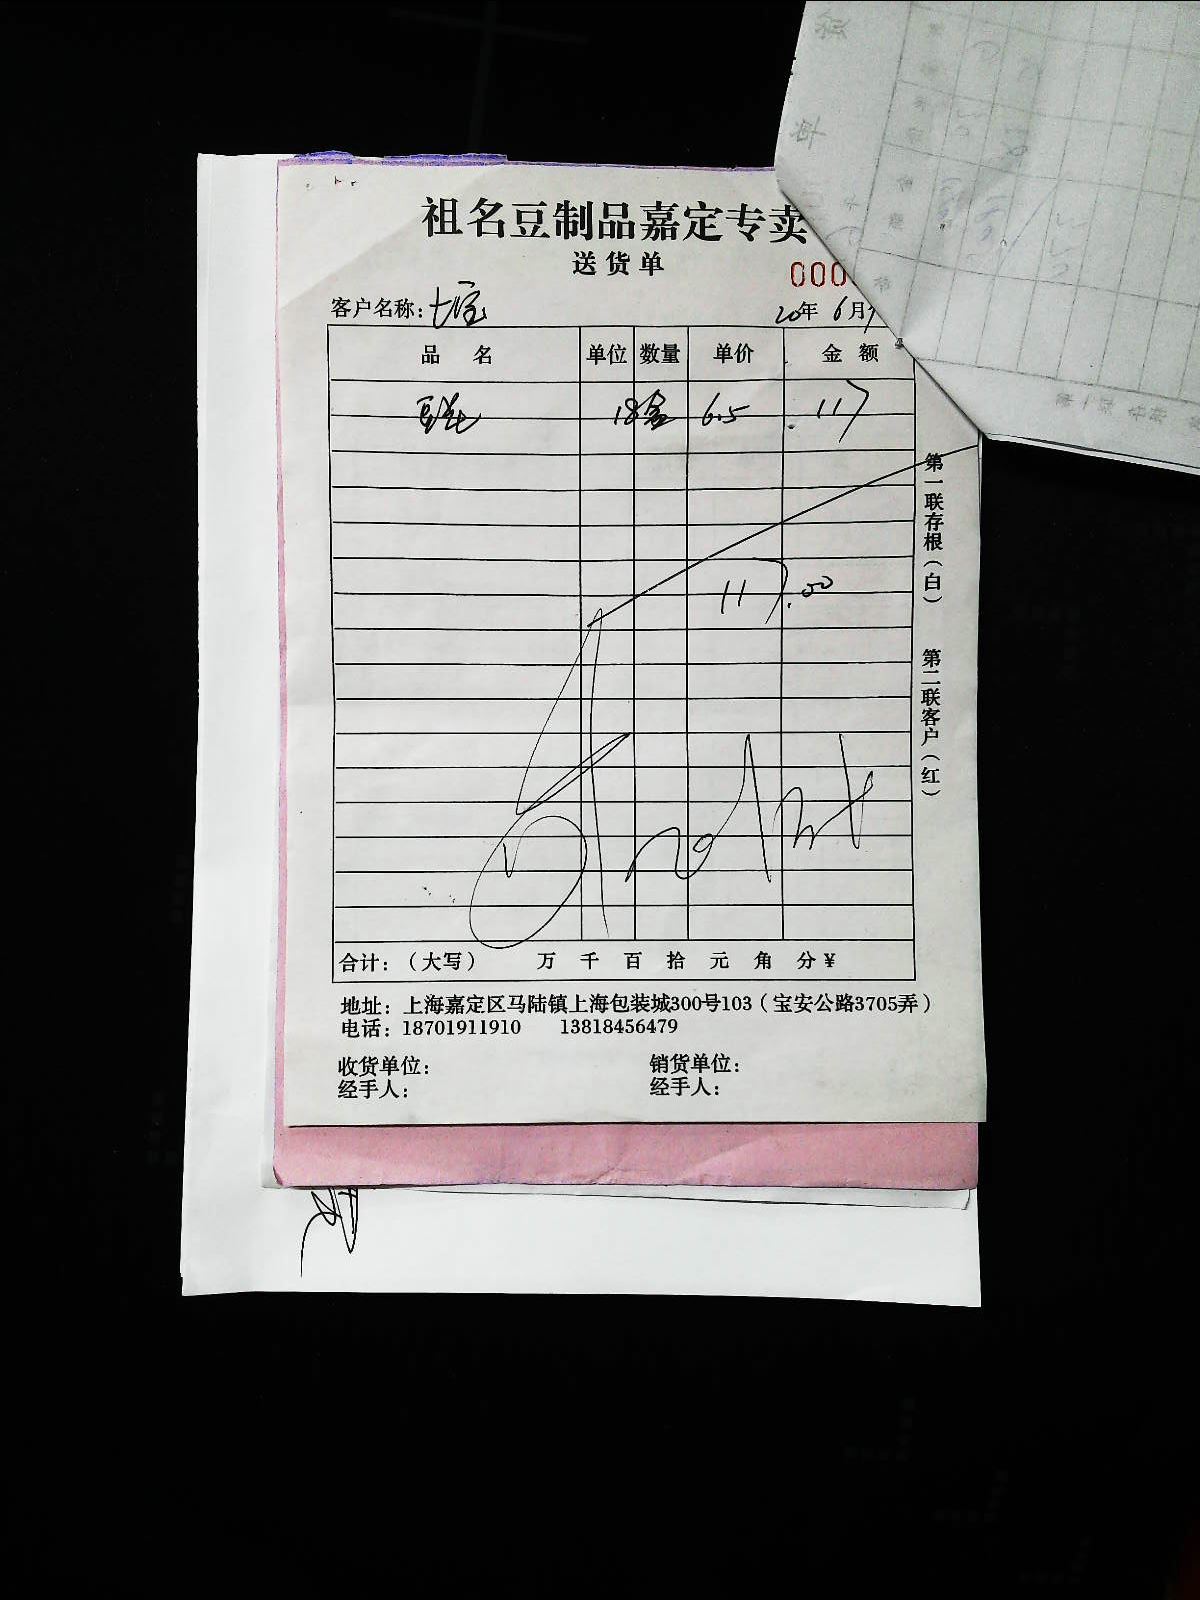 祖名豆制品嘉定专卖
送货单
000
客户名称：
20年 6月
品 名 单位 数量 单价 金 额
18盒 6.5 117
117.00
合计：（大写） 万 千 百 拾 元 角 分 ¥
地址：上海嘉定区马陆镇上海包装城300号103（宝安公路3705弄）
电话：18701911910 13818456479
收货单位： 销货单位：
经手人： 经手人：
第一联存根（白） 第二联客户（红）